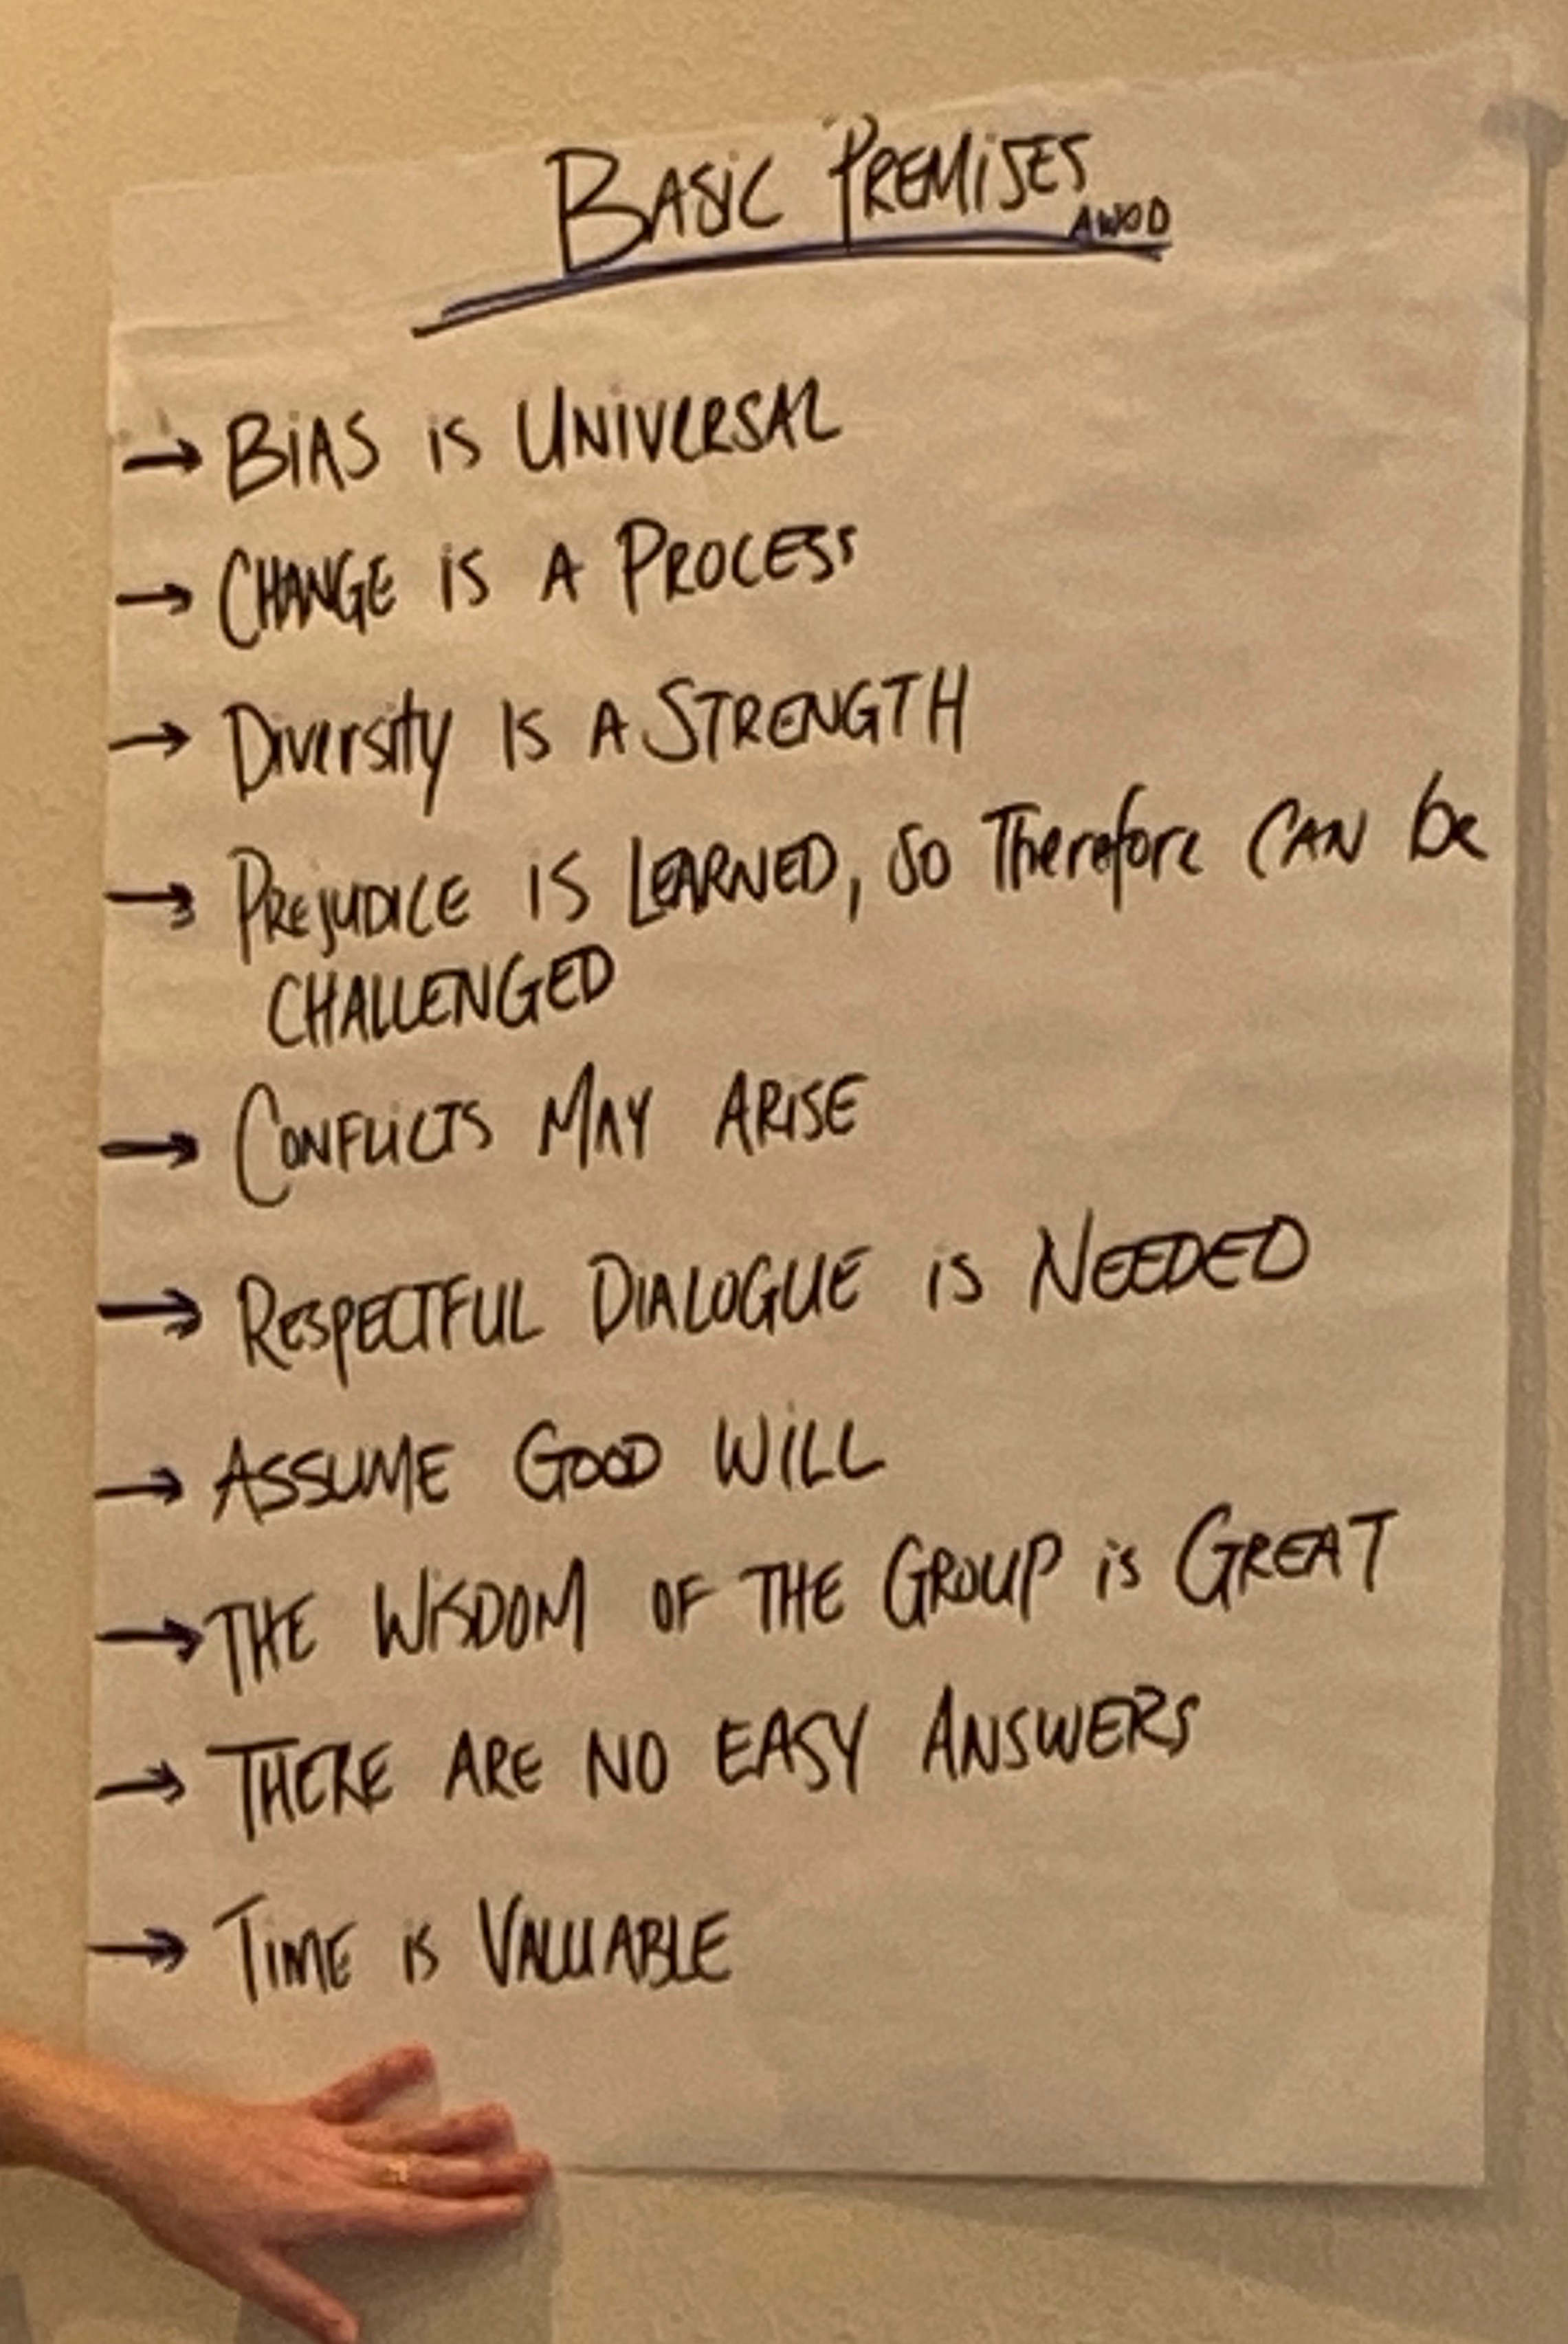 BASIC PREMISES
AWOD
→ BIAS IS UNIVERSAL
→ CHANGE IS A PROCESS
→ Diversity IS A STRENGTH
→ PREJUDICE IS LEARNED, SO Therefore CAN be
CHALLENGED
→ CONFLICTS MAY ARISE
→ RESPECTFUL DIALOGUE IS NEEDED
→ ASSUME GOOD WILL
→ THE WISDOM OF THE GROUP is GREAT
→ THERE ARE NO EASY ANSWERS
→ TIME IS VALUABLE